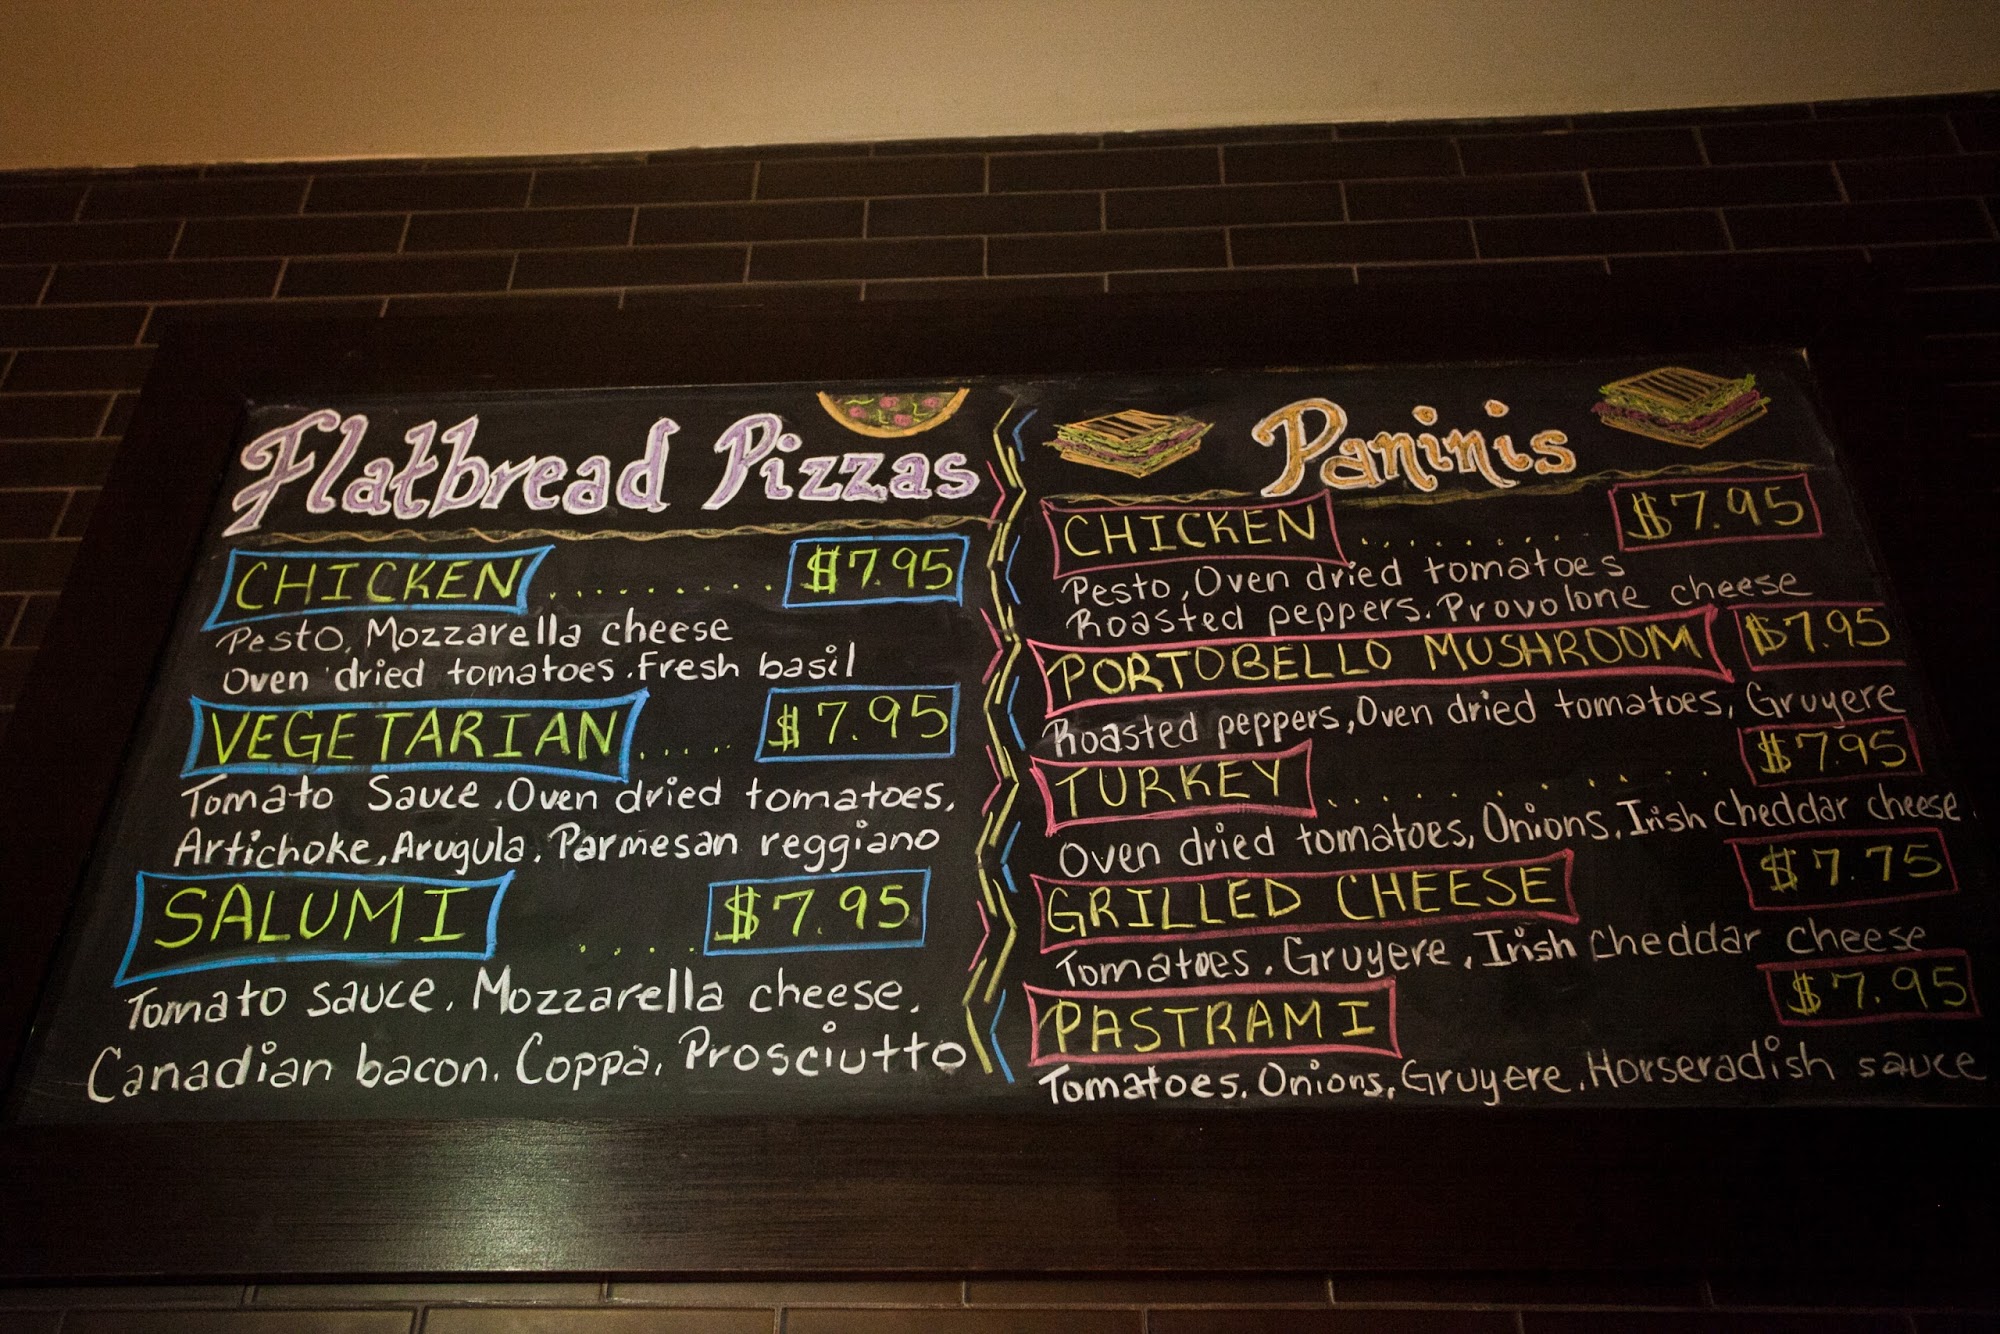 Flatbread Pizzas
CHICKEN ......... $7.95
Pesto, Mozzarella cheese
Oven dried tomatoes. Fresh basil
VEGETARIAN ..... $7.95
Tomato Sauce, Oven dried tomatoes,
Artichoke, Arugula, Parmesan reggiano
SALUMI ..... $7.95
Tomato sauce, Mozzarella cheese,
Canadian bacon, Coppa, Prosciutto
Paninis
CHICKEN ......... $7.95
Pesto, Oven dried tomatoes
Roasted peppers. Provolone cheese
PORTOBELLO MUSHROOM $7.95
Roasted peppers, Oven dried tomatoes, Gruyere
TURKEY ............ $7.95
Oven dried tomatoes, Onions, Irish Cheddar cheese.
GRILLED CHEESE $7.75
Tomatoes, Gruyere, Irish Cheddar cheese
PASTRAMI $7.95
Tomatoes, Onions, Gruyere, Horseradish sauce